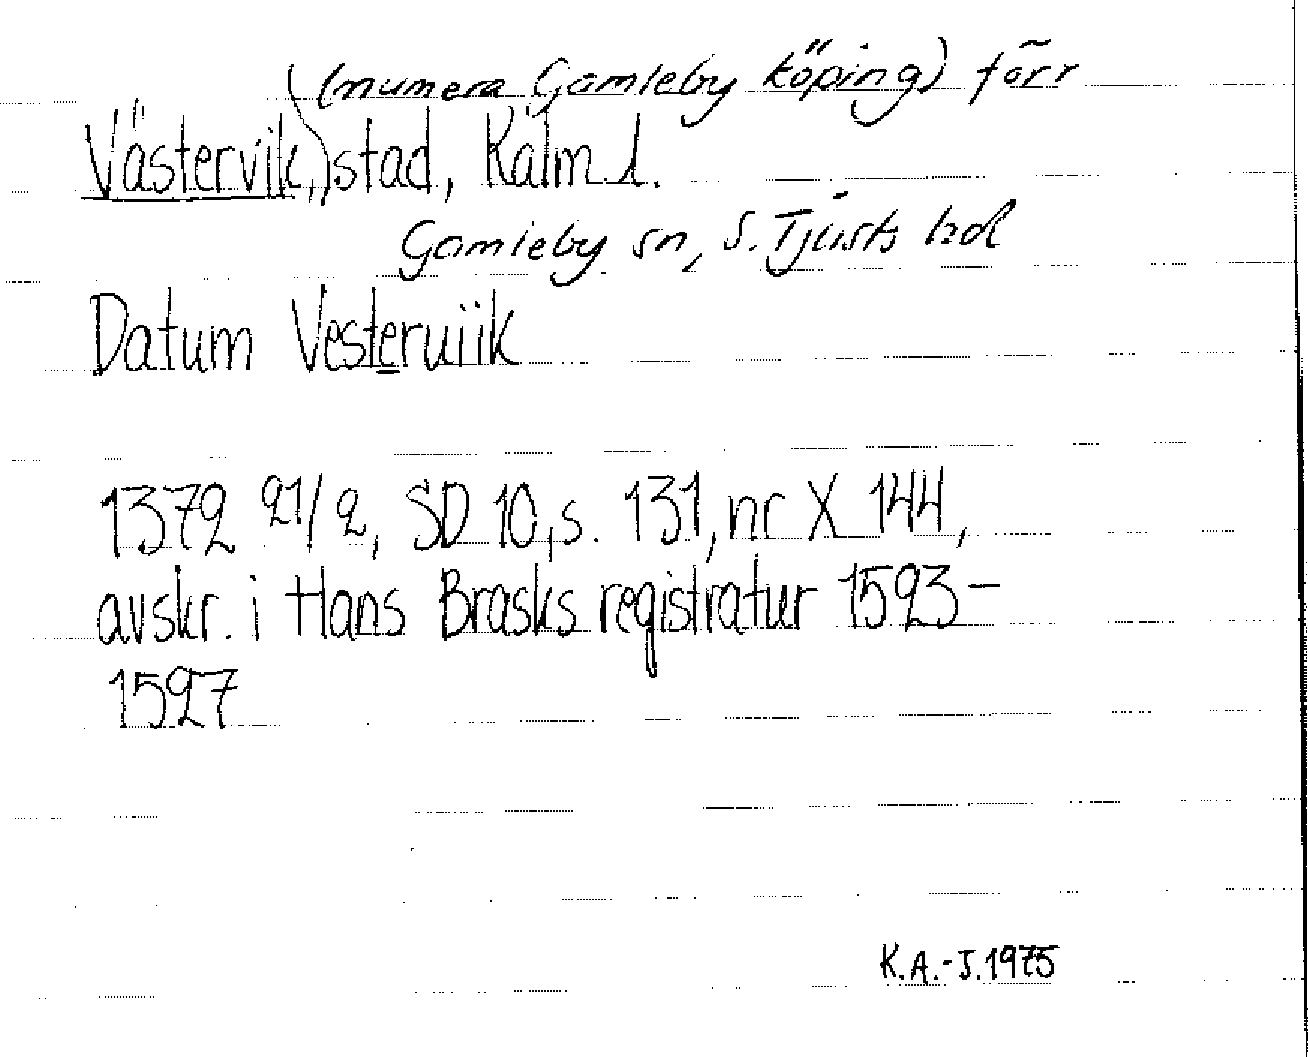 (numera Gamleby köping) förr
Västervik, stad, Kalm. l.
Gamleby sn, S. Tjusts hd
Datum Vesteruiik
1372 21/2, SD 10, s. 131, nr X 144,
avskr. i Hans Brasks registratur 1523-
1527
K.A.-J. 1975